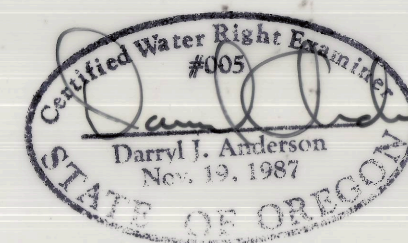 Certified Water Right Examiner
#005
Darryl J. Anderson
Nov. 19, 1987
STATE OF OREGON